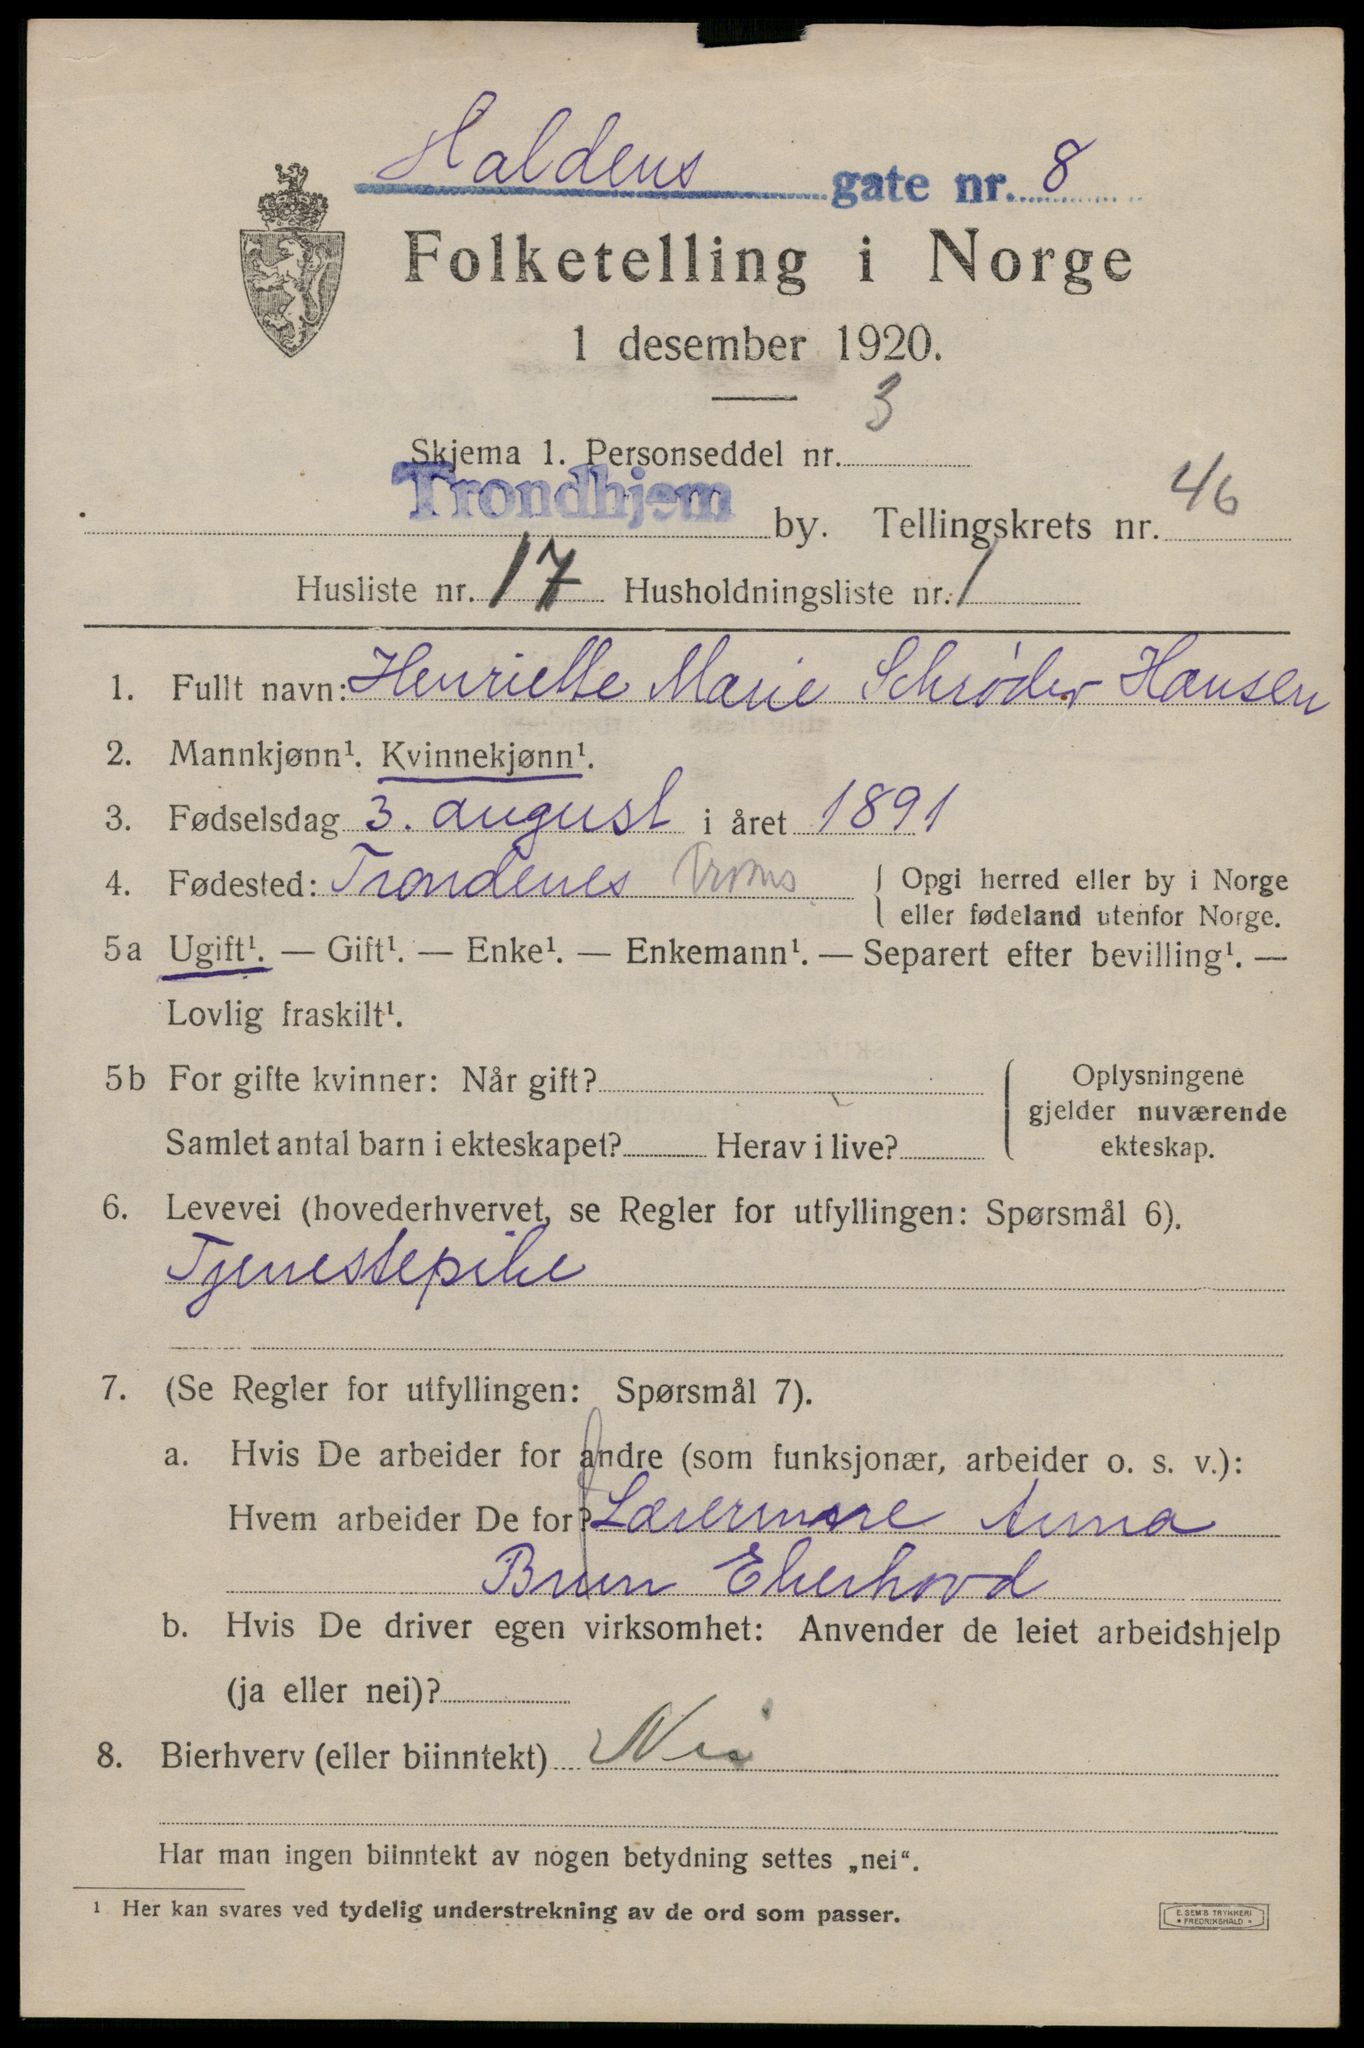 Haldens gate nr. 8
Folketelling i Norge
1 desember 1920.
Skjema 1. Personseddel nr. 3
Trondhjem by. Tellingskrets nr. 46
Husliste nr. 17 Husholdningsliste nr. 1
1. Fullt navn: Henriette Marie Schrøder Hansen
2. Mannkjønn¹. Kvinnekjønn¹.
3. Fødselsdag 3. august i året 1891
4. Fødested: Trondenes Troms { Opgi herred eller by i Norge
eller fødeland utenfor Norge.
5a Ugift¹. — Gift¹. — Enke¹. — Enkemann¹. — Separert efter bevilling¹. —
Lovlig fraskilt¹.
5b For gifte kvinner: Når gift?
Samlet antal barn i ekteskapet? Herav i live?
Oplysningene
gjelder nuværende
ekteskap.
6. Levevei (hovederhvervet, se Regler for utfyllingen: Spørsmål 6).
Tjenestepike
7. (Se Regler for utfyllingen: Spørsmål 7).
a. Hvis De arbeider for andre (som funksjonær, arbeider o. s. v.):
Hvem arbeider De for? Anna
Brun
b. Hvis De driver egen virksomhet: Anvender de leiet arbeidshjelp
(ja eller nei)?
8. Bierhverv (eller biinntekt) Nei
Har man ingen biinntekt av nogen betydning settes „nei“.
¹ Her kan svares ved tydelig understrekning av de ord som passer.
E. SEM'S TRYKKERI
• FREDRIKSHALD •